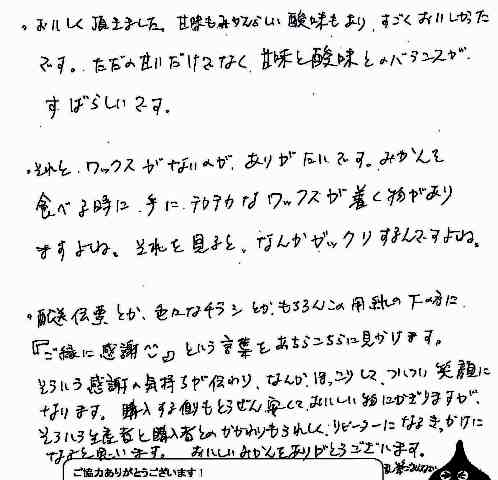 ・おいしく頂きました。甘味もみかんらしい酸味もあり、すごくおいしかった
です。ただの甘いだけでなく、甘味と酸味とのバランスが
すばらしいです。
・それと、ワックスがないのが、ありがたいです。みかんを
食べる時に、手に、テカテカなワックスが着く物があり
ますよね。それを見ると、なんかガックリするんですよね。
・配送伝票とか、色々なチラシとか、もちろんこの用紙の下の方に
『ご縁に感謝』という言葉をあちらこちらに見かけます。
そういう感謝の気持ちが伝わり、なんか、ほっこりして、ついつい笑顔に
なります。購入する側もとうぜん安くて、おいしい物にかぎりますが、
そういう生産者と購入者とのかかわりもうれしく、リピーターになるきっかけに
なると思います。おいしいみかんをありがとうございます。
ご協力ありがとうございます！